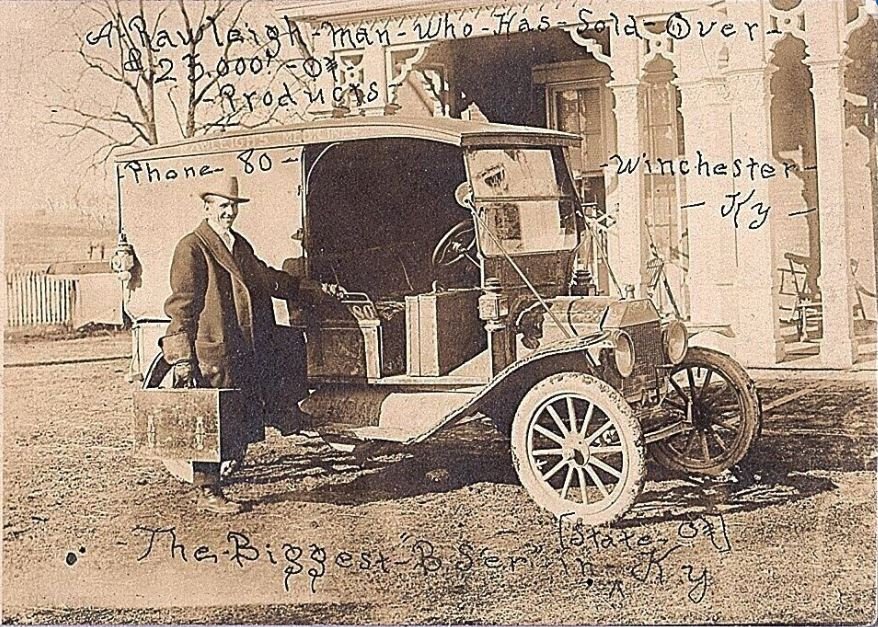 A-Rawleigh-Man-Who-Has-Sold-Over-
$25,000.-Of-
-Products-
-Phone-80-
-Winchester-
-Ky-
80
-The-Biggest-"B.Ser"-in-Ky
[State-Of]